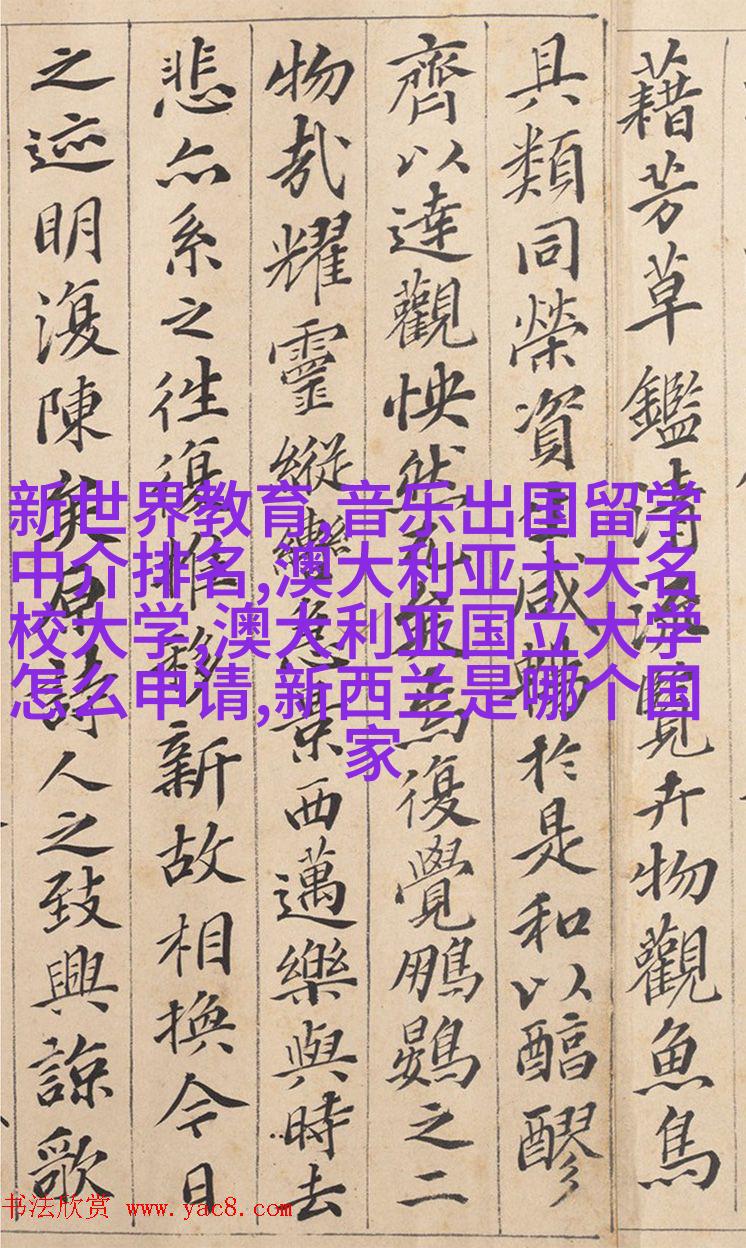 藉芳草鑑清流覽卉物觀魚鳥
具類同榮資生咸暢於是和以醇醪
齊以達觀怏然兀矣焉復覺鵬鷃之二
物哉耀靈縱轡急景西邁樂與時去
悲亦系之往復推移新故相換今日
之迹明復陳矣原詩人之致興諒歌
新世界教育,音乐出国留学
中介排名,澳大利亚十大名
校大学,澳大利亚国立大学
怎么申请,新西兰是哪个国
家
书法欣赏 www.yac8.com